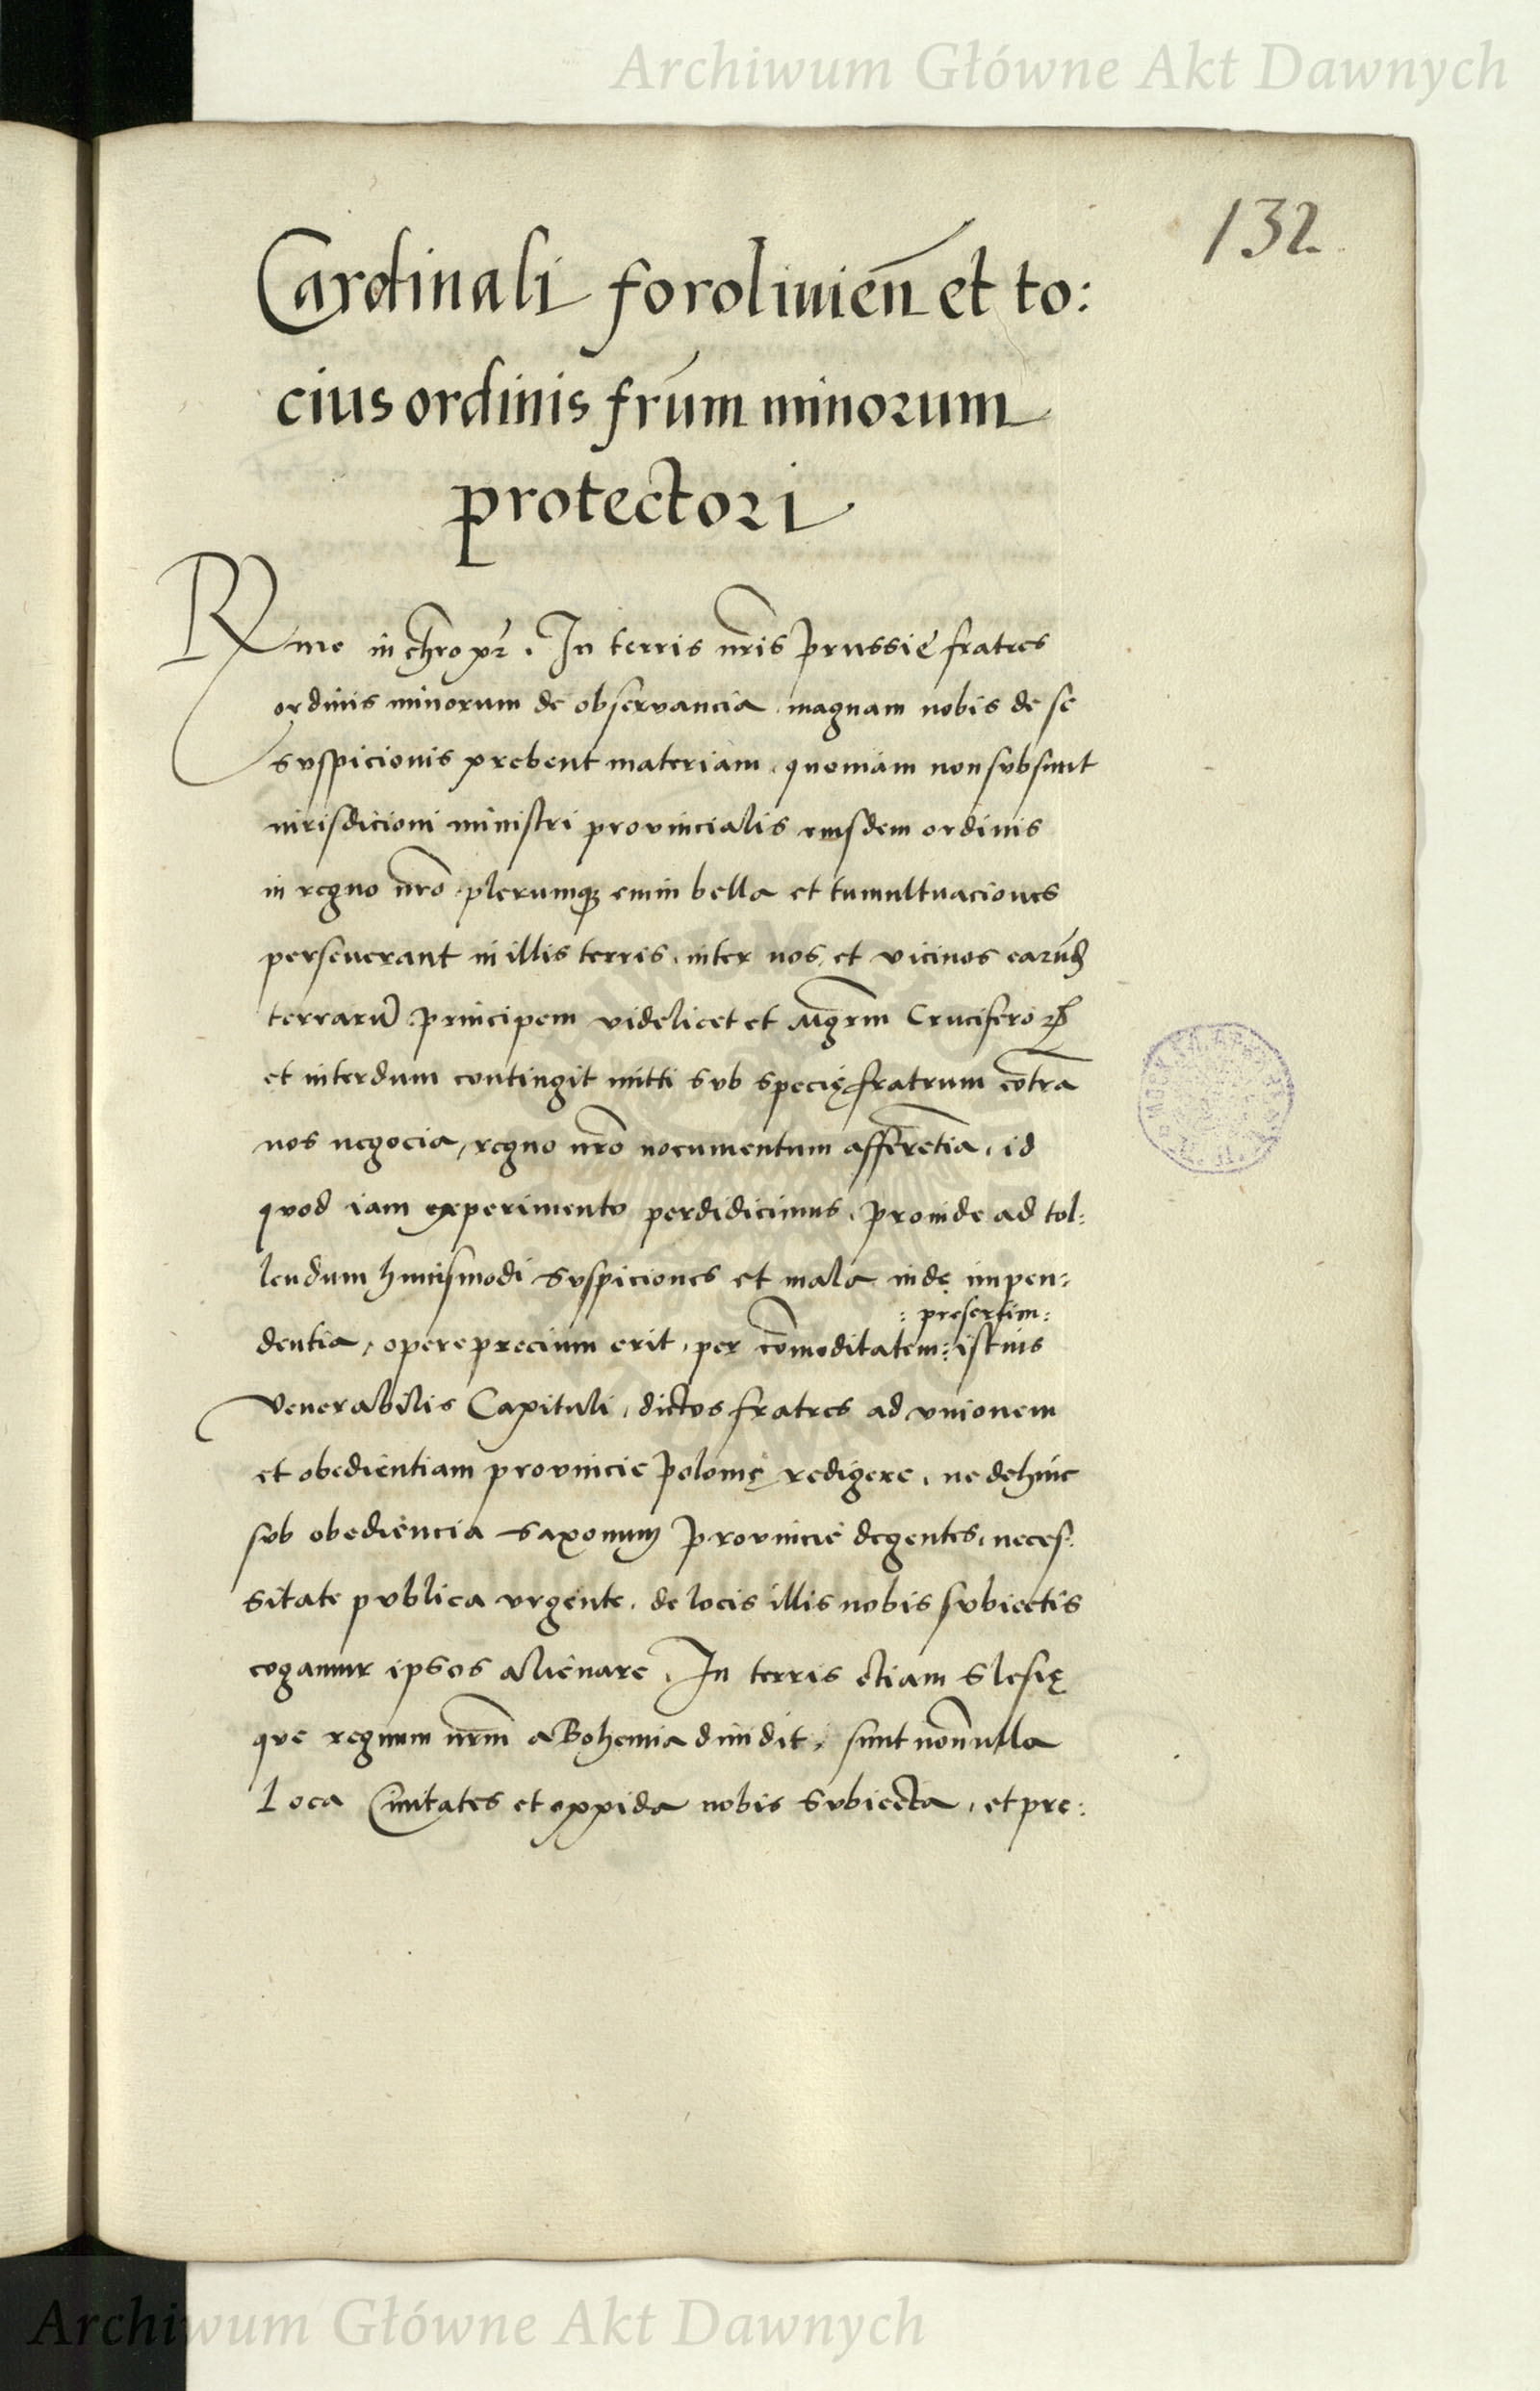 Archiwum Główne Akt Dawnych
132
Cardinali foroliuien̄ et to:
cius ordinis fr̄um minorum
protectori
Rme in chr̄o pr̄. In terris nr̄is Prussie fratres
ordinis minorum de observancia magnam nobis de se
suspicionis prebent materiam, quoniam non subsunt
iurisdicioni ministri provincialis eiusdem ordinis
in regno nr̄o plerumqꝫ enim bella et tumultuaciones
perseverant in illis terris, inter nos, et vicinos earūd
terrarū principem videlicet et Mgr̄m Cruciferoꝝ
et interdum contingit mitti sub specię fratrum cōtra
nos negocia, regno nr̄o nocumentum afferētia, id
quod iam experimento perdidicimus, Proinde ad tol:
lendum huiusmodi suspiciones et mala indę impen:
: presertim :
dentia, opereprecium erit, per cōmoditatem: istius
Venerabilis Capituli, dictos fratres ad unionem
et obedientiam provincie Polonię redigere, ne dehinc
sub obediencia Saxonum Provincie degentes, neces:
sitate publica urgente, de locis illis nobis subiectis
cogamur ipsos alienare. In terris etiam Slesię
que regnum nr̄m a Bohemia dividit, sunt nōnulla
Loca Civitates et oppida nobis subiecta, et pre:
Archiwum Główne Akt Dawnych